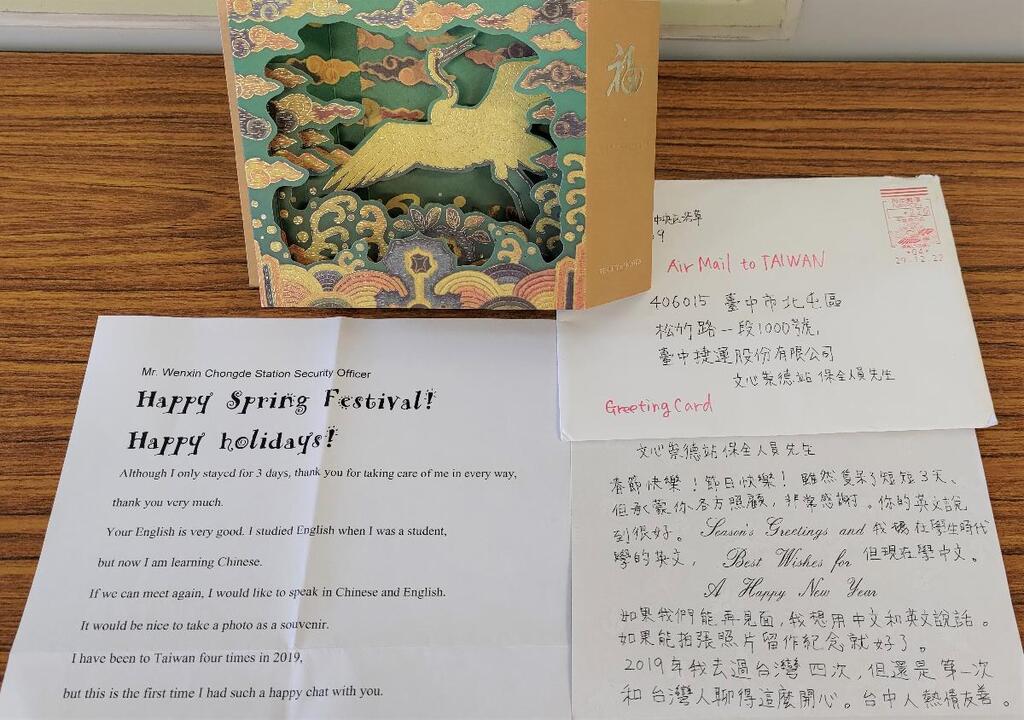 福
Air Mail to TAIWAN
406015 臺中市北屯區
松竹路一段1000號,
臺中捷運股份有限公司
文心崇德站 保全人員先生
Greeting Card
29.12.22
Mr. Wenxin Chongde Station Security Officer
Happy Spring Festival!
Happy holidays!
Although I only stayed for 3 days, thank you for taking care of me in every way,
thank you very much.
Your English is very good. I studied English when I was a student,
but now I am learning Chinese.
If we can meet again, I would like to speak in Chinese and English.
It would be nice to take a photo as a souvenir.
I have been to Taiwan four times in 2019,
but this is the first time I had such a happy chat with you.
文心崇德站保全人員先生
春節快樂！節日快樂！雖然隻呆了短短3天、
但承蒙你各方照顧，非常感謝。你的英文說
到很好。 Season's Greetings and 我場在學生時代
學的英文， Best Wishes for 但現在學中文。
A Happy New Year
如果我們能再見面，我想用中文和英文說話。
如果能拍張照片留作紀念就好了。
2019年我去過台灣四次，但還是第一次
和台灣人聊得這麼開心。台中人熱情友善。